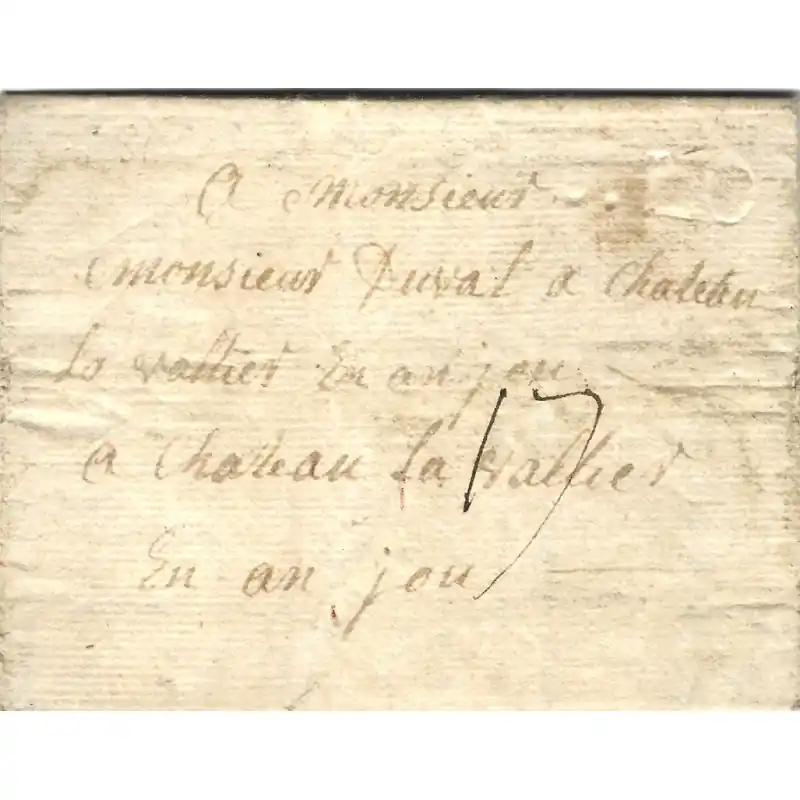 A Monsieur
Monsieur Duval a Chateau
la vallier En an jou
17
a Chateau la vallier
En an jou